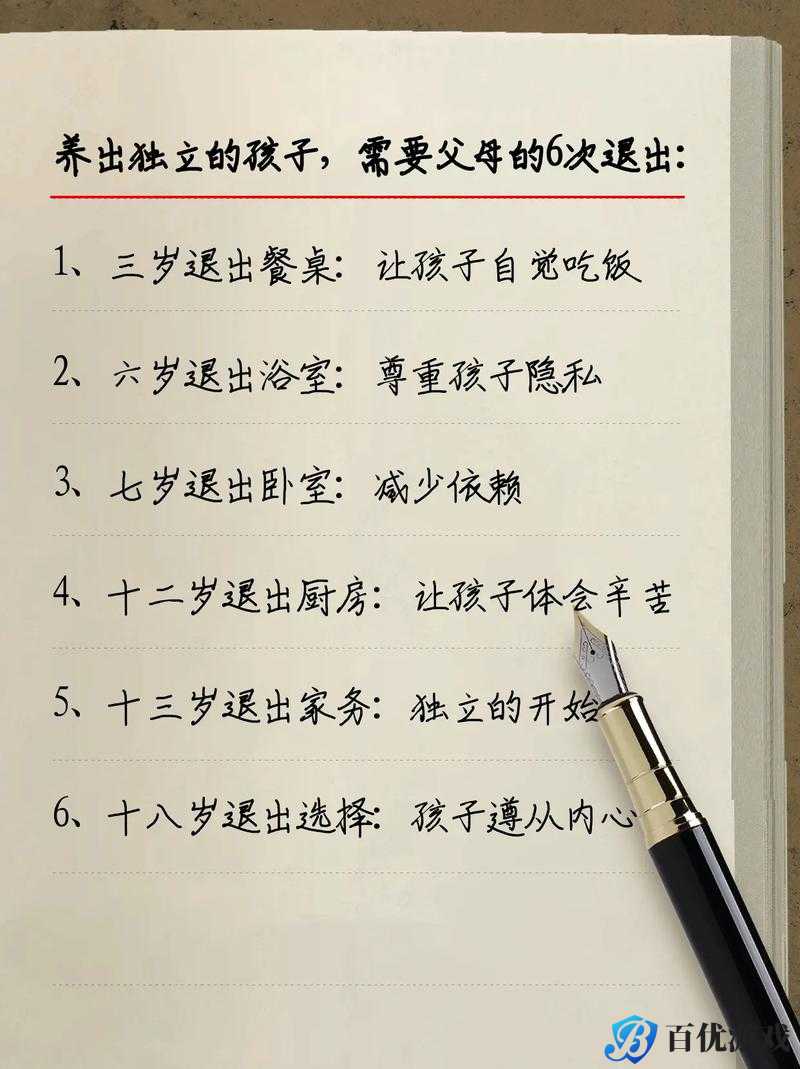 养出独立的孩子，需要父母的6次退出：
1、三岁退出餐桌：让孩子自觉吃饭
2、六岁退出浴室：尊重孩子隐私
3、七岁退出卧室：减少依赖
4、十二岁退出厨房：让孩子体会辛苦
5、十三岁退出家务：独立的开始
6、十八岁退出选择：孩子遵从内心
百优游戏